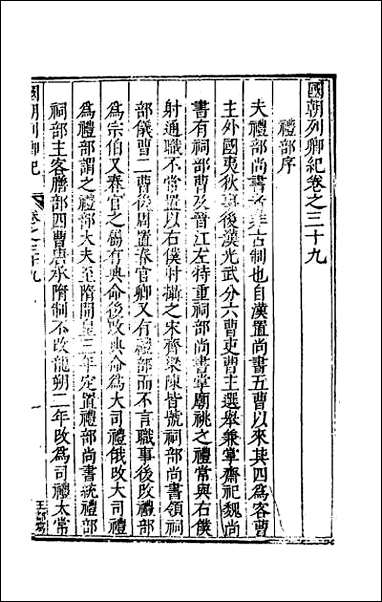 國朝列卿紀卷之三十九
禮部序
夫禮部尚書者非古制也自漢置尚書五曹以來其四為客曹
主外國夷狄事後漢光武分六曹吏曹主選舉兼掌齋祀魏尚
書有祠部曹及晉江左特重祠部尚書掌廟祧之禮常與右僕
射通職不常置以右僕射攝之宋齊梁陳皆號祠部尚書領祠
部儀曹二曹後周置春官卿又有禮部而不言職事後改禮部
為宗伯又春官之屬有典命後改典命為大司禮俄改大司禮
為禮部謂之禮部大夫至隋開皇三年定置禮部尚書統禮部
祠部主客膳部四曹唐承隋制不改龍朔二年改為司禮太常
國朝列卿紀 卷之三十九 一